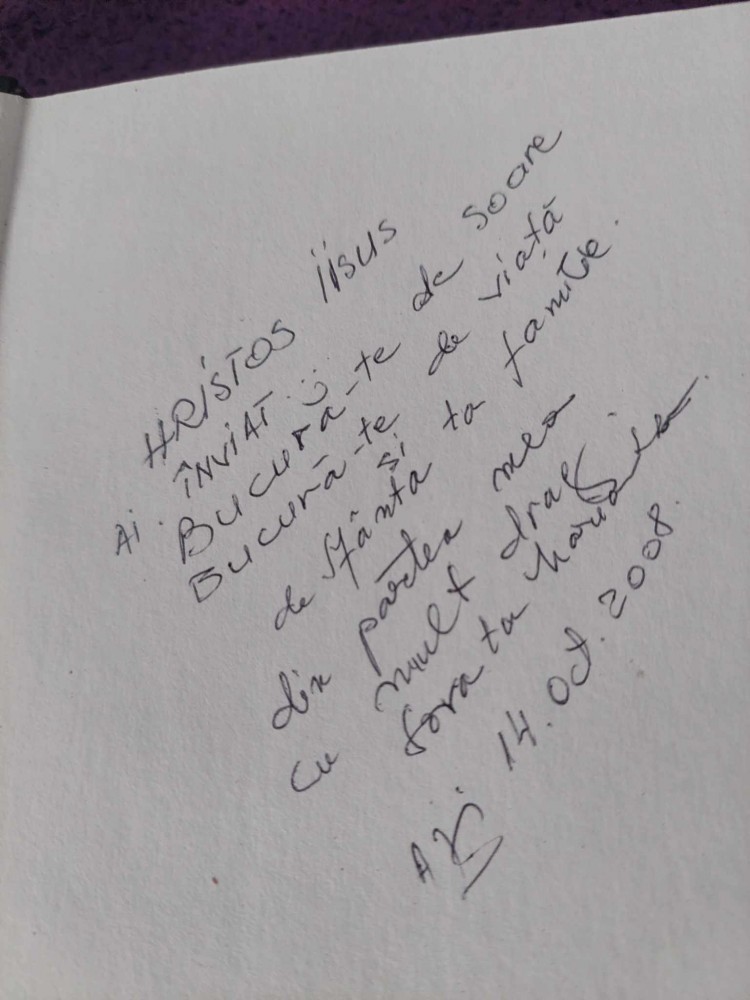 HRISTOS IISUS
Ai ÎNVIAT.
BUCURĂ-te de soare
BUCURĂ-te de viață
de sfânta și ta familie.
din partea mea
cu mult drag
sora ta
Azi 14. Oct. 2008.